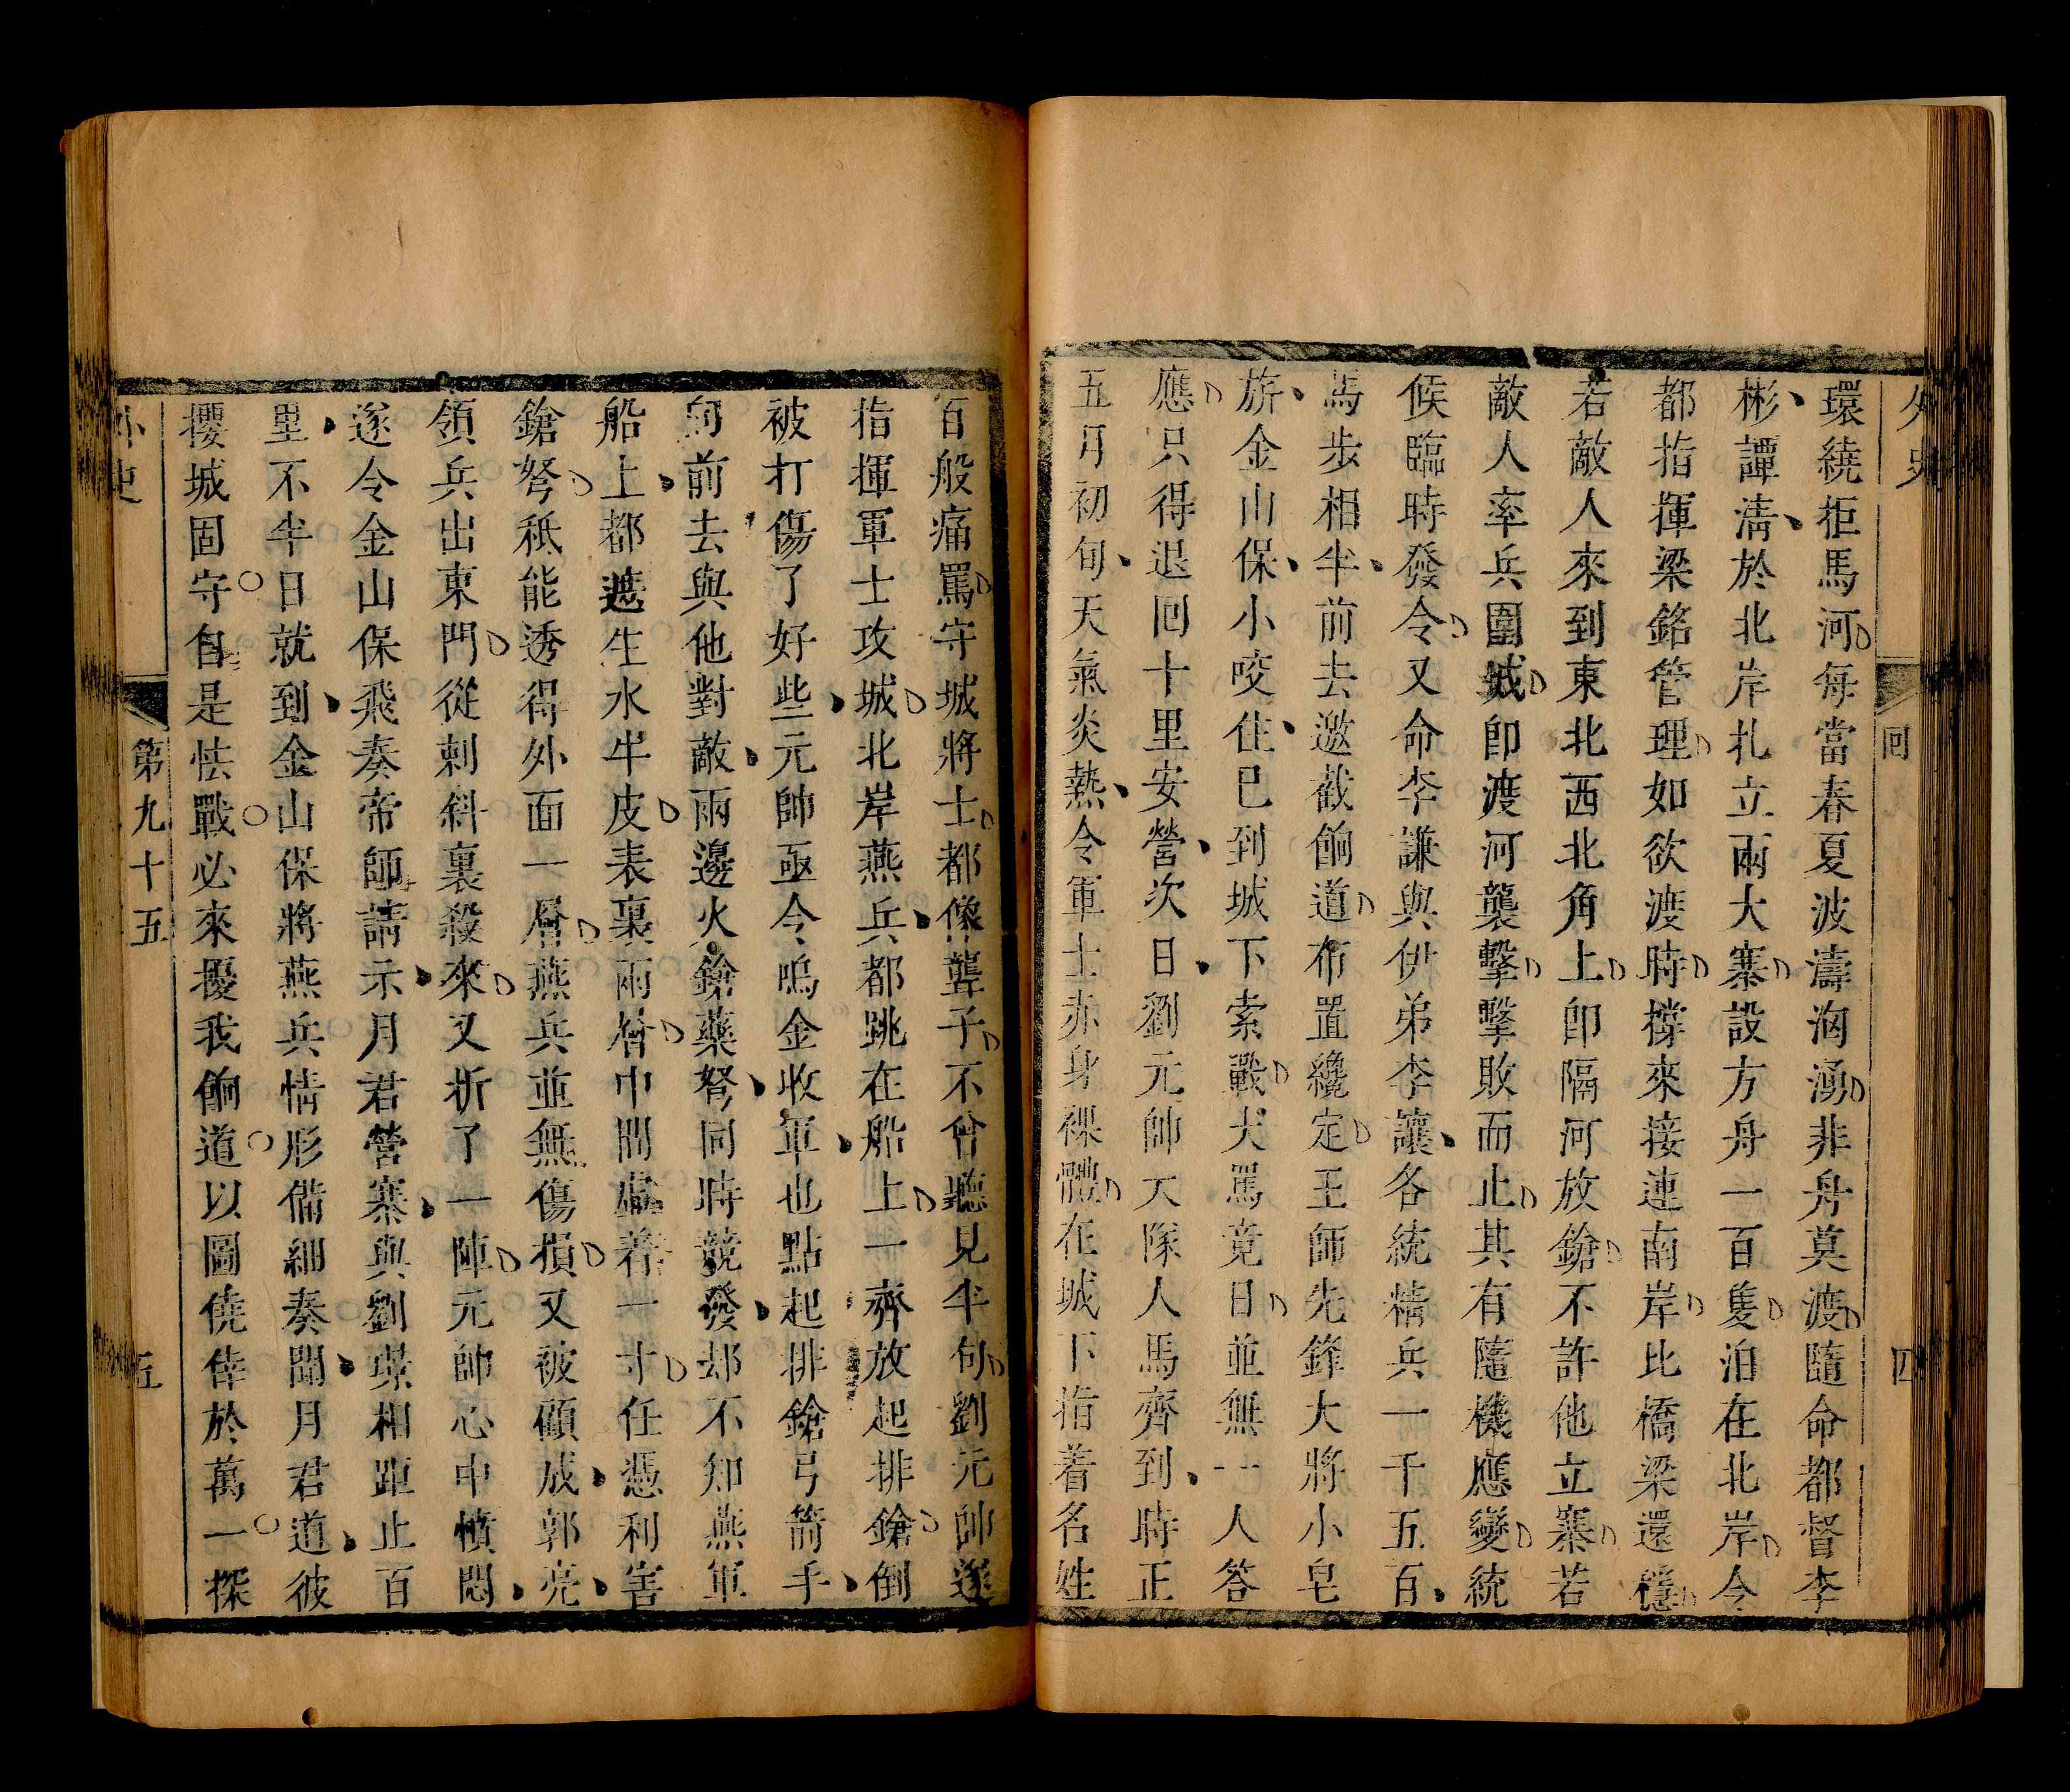 外史
回
四
環繞拒馬河每當春夏波濤洶湧非舟莫渡隨命都督李
彬譚淸於北岸扎立兩大寨設方舟一百隻泊在北岸令
都指揮梁銘管理如欲渡時撐來接連南岸比橋梁還穩
若敵人來到東北西北角上卽隔河放鎗不許他立寨若
敵人率兵圍城卽渡河襲擊擊敗而止其有隨機應變統
候臨時發令又命李謙與伊弟李讓各統精兵一千五百
馬步相半前去邀截餉道布置纔定王師先鋒大將小皂
旂金山保小咬住已到城下索戰大罵竟日並無一人答
應只得退回十里安營次日劉元帥大隊人馬齊到時正
五月初旬天氣炎熱令軍士赤身裸體在城下指着名姓
百般痛罵守城將士都像聾子不曾聽見半句劉元帥遂
指揮軍士攻城北岸燕兵都跳在船上一齊放起排鎗倒
被打傷了好些元帥亟令鳴金收軍也點起排鎗弓箭手
向前去與他對敵兩邊火鎗藥弩同時競發却不知燕軍
船上都遮生水牛皮表裏兩層中間虛着一寸任憑利害
鎗弩秪能透得外面一層燕兵並無傷損又被顧成郭亮
領兵出東門從刺斜裏殺來又折了一陣元帥心中憤悶
遂令金山保飛奏帝師請示月君營寨與劉璟相距止百
里不半日就到金山保將燕兵情形備細奏聞月君道彼
攖城固守自是怯戰必來擾我餉道以圖僥倖於萬一探
外史
第九十五
五